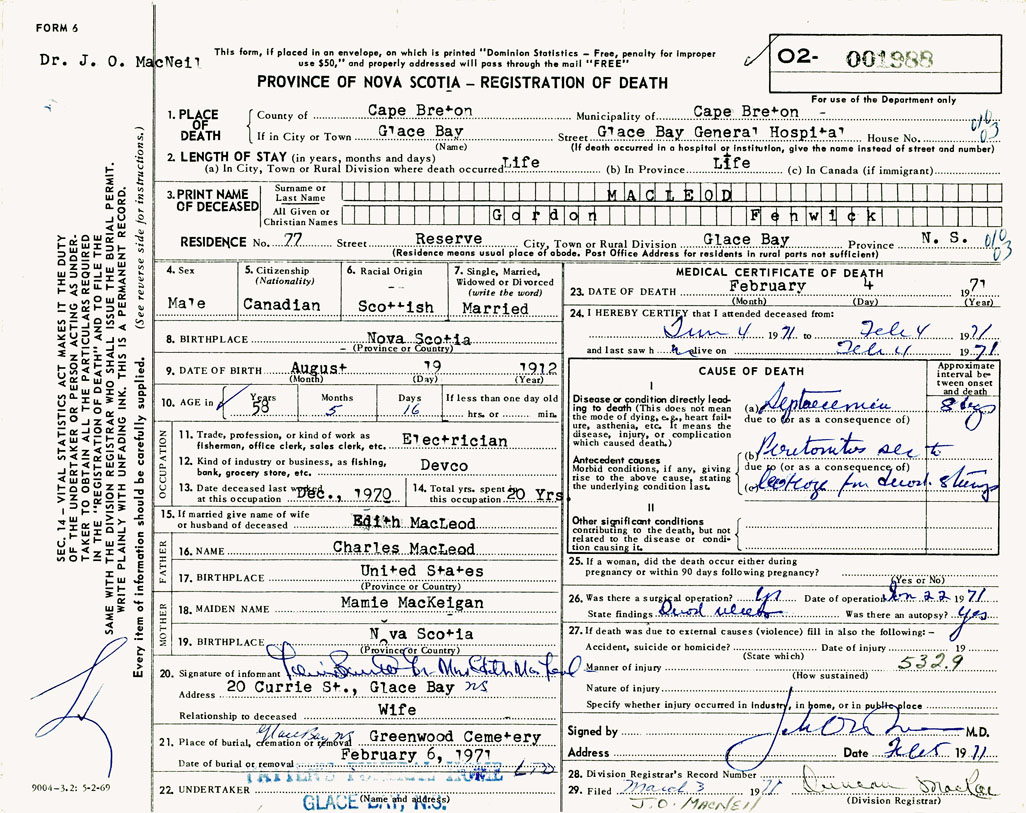 FORM 6
Dr. J. O. MacNeil
This form, if placed in an envelope, on which is printed "Dominion Statistics – Free, penalty for improper
use $50," and properly addressed will pass through the mail "FREE"
PROVINCE OF NOVA SCOTIA – REGISTRATION OF DEATH
02- 001988
For use of the Department only
1. PLACE OF DEATH
County of Cape Breton Municipality of Cape Breton -
If in City or Town Glace Bay Street Glace Bay General Hospital House No.
(Name) (If death occurred in a hospital or institution, give the name instead of street and number)
010
03
2. LENGTH OF STAY (in years, months and days)
(a) In City, Town or Rural Division where death occurred Life (b) In Province Life (c) In Canada (if immigrant)
3. PRINT NAME OF DECEASED
Surname or Last Name MACLEOD
All Given or Christian Names Gordon Fenwick
RESIDENCE No. 77 Street Reserve City, Town or Rural Division Glace Bay Province N. S.
(Residence means usual place of abode. Post Office Address for residents in rural parts not sufficient)
010
03
4. Sex
Male
5. Citizenship
(Nationality)
Canadian
6. Racial Origin
Scottish
7. Single, Married,
Widowed or Divorced
(write the word)
Married
8. BIRTHPLACE Nova Scotia
(Province or Country)
9. DATE OF BIRTH August 19 1912
(Month) (Day) (Year)
10. AGE in Years 58 Months 5 Days 16 If less than one day old
hrs. or min.
OCCUPATION
11. Trade, profession, or kind of work as
fisherman, office clerk, sales clerk, etc. Electrician
12. Kind of industry or business, as fishing,
bank, grocery store, etc. Devco
13. Date deceased last worked
at this occupation Dec., 1970
14. Total yrs. spent in
this occupation 20 Yrs
15. If married give name of wife
or husband of deceased Edith MacLeod
FATHER
16. NAME Charles MacLeod
17. BIRTHPLACE United States
(Province or Country)
MOTHER
18. MAIDEN NAME Mamie MacKeigan
19. BIRTHPLACE Nova Scotia
(Province or Country)
20. Signature of informant
Address 20 Currie St., Glace Bay NS
Relationship to deceased Wife
21. Place of burial, cremation or removal Glace Bay NS Greenwood Cemetery
Date of burial or removal February 6, 1971
22. UNDERTAKER
FUNERAL HOME LTD
GLACE BAY, N.S.
(Name and address)
MEDICAL CERTIFICATE OF DEATH
23. DATE OF DEATH February 4 1971
(Month) (Day) (Year)
24. I HEREBY CERTIFY that I attended deceased from:
4 1971 to Feb 4 1971
and last saw h alive on Feb 4 1971
CAUSE OF DEATH
Approximate
interval be-
tween onset
and death
I
Disease or condition directly lead-
ing to death (This does not mean
the mode of dying, e.g., heart fail-
ure, asthenia, etc. It means the
disease, injury, or complication
which caused death.)
(a) Septacemia 8 days
due to (or as a consequence of)
Antecedent causes
Morbid conditions, if any, giving
rise to the above cause, stating
the underlying condition last.
(b) Peritonitis sec to
due to (or as a consequence of)
(c) for duod.
II
Other significant conditions
contributing to the death, but not
related to the disease or condi-
tion causing it.
25. If a woman, did the death occur either during
pregnancy or within 90 days following pregnancy?
(Yes or No)
26. Was there a surgical operation? Yes Date of operation Jan 22 1971
State findings Duod ulcer Was there an autopsy? Yes
27. If death was due to external causes (violence) fill in also the following: –
Accident, suicide or homicide? Date of injury 19
(State which)
532.9
Manner of injury
(How sustained)
Nature of injury
Specify whether injury occurred in industry, in home, or in public place
Signed by M.D.
Address Date Feb 5 1971
28. Division Registrar's Record Number
29. Filed March 3 1971 Duncan MacRae
J.O. MACNEIL
(Division Registrar)
SEC. 14 – VITAL STATISTICS ACT MAKES IT THE DUTY
OF THE UNDERTAKER OR PERSON ACTING AS UNDER-
TAKER TO OBTAIN ALL THE PARTICULARS REQUIRED
IN THE "REGISTRATION OF DEATH" AND TO FILE THE
SAME WITH THE DIVISION REGISTRAR WHO SHALL ISSUE THE BURIAL PERMIT.
WRITE PLAINLY WITH UNFADING INK. THIS IS A PERMANENT RECORD.
Every item of information should be carefully supplied. (See reverse side for instructions.)
9004-3.2: 5-2-69